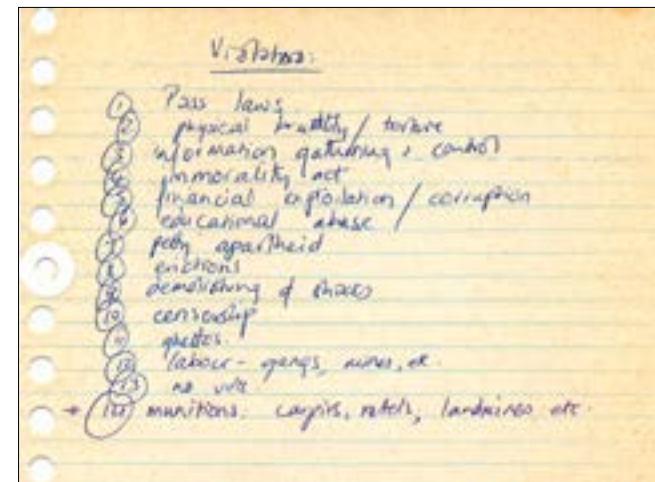 Violations:
1 Pass laws
2 physical brutality / torture
3 information gathering & control
4 immorality act
5 financial exploitation / corruption
6 educational abuse
7 petty apartheid
8 evictions
9 demolishing of shacks
10 censorship
11 ghettos.
12 labour - gangs, mines, etc.
13 no vote
→ 14 munitions: caspirs, ratels, landmines etc.